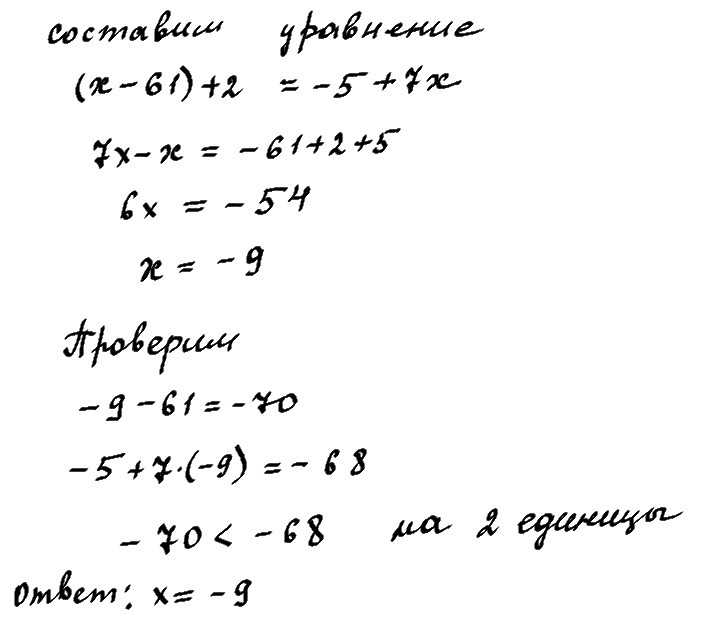 составим уравнение
(x-61)+2 = -5+7x
7x-x = -61+2+5
6x = -54
x = -9
Проверим
-9-61=-70
-5+7·(-9)=-68
-70< -68 на 2 единицы
Ответ: x= -9